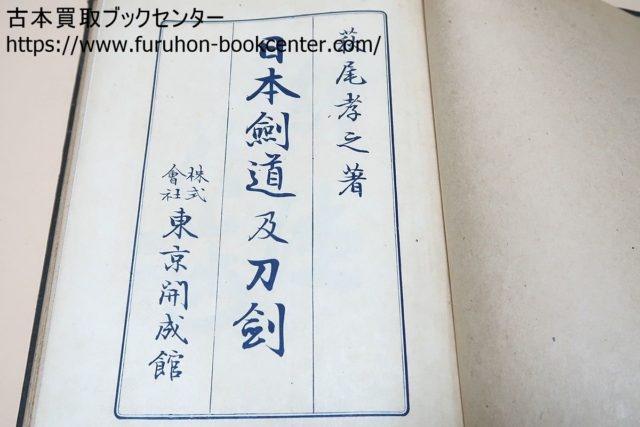 古本買取ブックセンター
https://www.furuhon-bookcenter.com/
萩尾孝之著
日本劍道及刀劍
株式會社 東京開成館